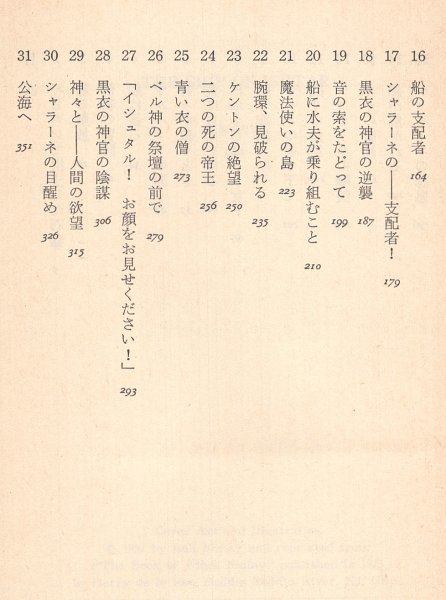 16 船の支配者 164
17 シャラーネの――支配者！ 179
18 黒衣の神官の逆襲 187
19 音の索をたどって 199
20 船に水夫が乗り組むこと 210
21 魔法使いの島 223
22 腕環、見破られる 235
23 ケントンの絶望 250
24 二つの死の帝王 256
25 青い衣の僧 273
26 ベル神の祭壇の前で 279
27 「イシュタル！　お顔をお見せください！」 293
28 黒衣の神官の陰謀 306
29 神々と――人間の欲望 315
30 シャラーネの目醒め 326
31 公海へ 351